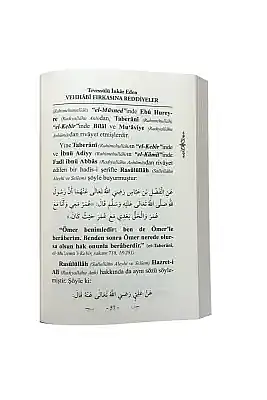 Tevessülü İnkâr Eden
VEHHÂBÎ FIRKASINA REDDİYELER
(Rahimehumullâh) "el-Müsned"inde Ebû Hurey-
re (Radıyallâhu Anh)dan, Taberânî (Rahimehullâh)
"el-Kebîr"inde Bilâl ve Mu'âviye (Radıyallâhu
Anhümâ)dan rivâyet etmişlerdir.
Yine Taberânî (Rahimehullâh)ın "el-Kebîr"inde
ve İbnü Adiyy (Rahimehullâh)ın "el-Kâmil"inde
Fadl ibnü Abbâs (Radıyallâhu Anhümâ)dan rivâyet
edilen bir hadîs-i şerîfte Rasûlüllâh (Sallallâhu
Aleyhi ve Sellem) şöyle buyurmuştur:
عَنِ الْفَضْلِ بْنِ عَبَّاسٍ رَضِيَ اللّٰهُ تَعَالَى عَنْهُمَا أَنَّ رَسُولَ
اللّٰهِ صَلَّى اللّٰهُ تَعَالَى عَلَيْهِ وَسَلَّمَ قَالَ: «عُمَرُ مَعِي وَأَنَا مَعَ
عُمَرَ وَالْحَقُّ بَعْدِي مَعَ عُمَرَ حَيْثُ كَانَ.»
"Ömer benimledir; ben de Ömer'le
beraberim. Benden sonra Ömer nerede olur-
sa olsun hak onunla beraberdir." (et-Taberânî,
el-Mu'cemu'l-Kebîr, rakam:
Rasûlüllâh (Sallallâhu Aleyhi ve Sellem) Hazret-i
Alî (Radıyallâhu Anh) hakkında da aynı sözü söyle-
miştir. Şöyle ki:
عَنْ عَلِيٍّ رَضِيَ اللّٰهُ تَعَالَى عَنْهُ قَالَ: